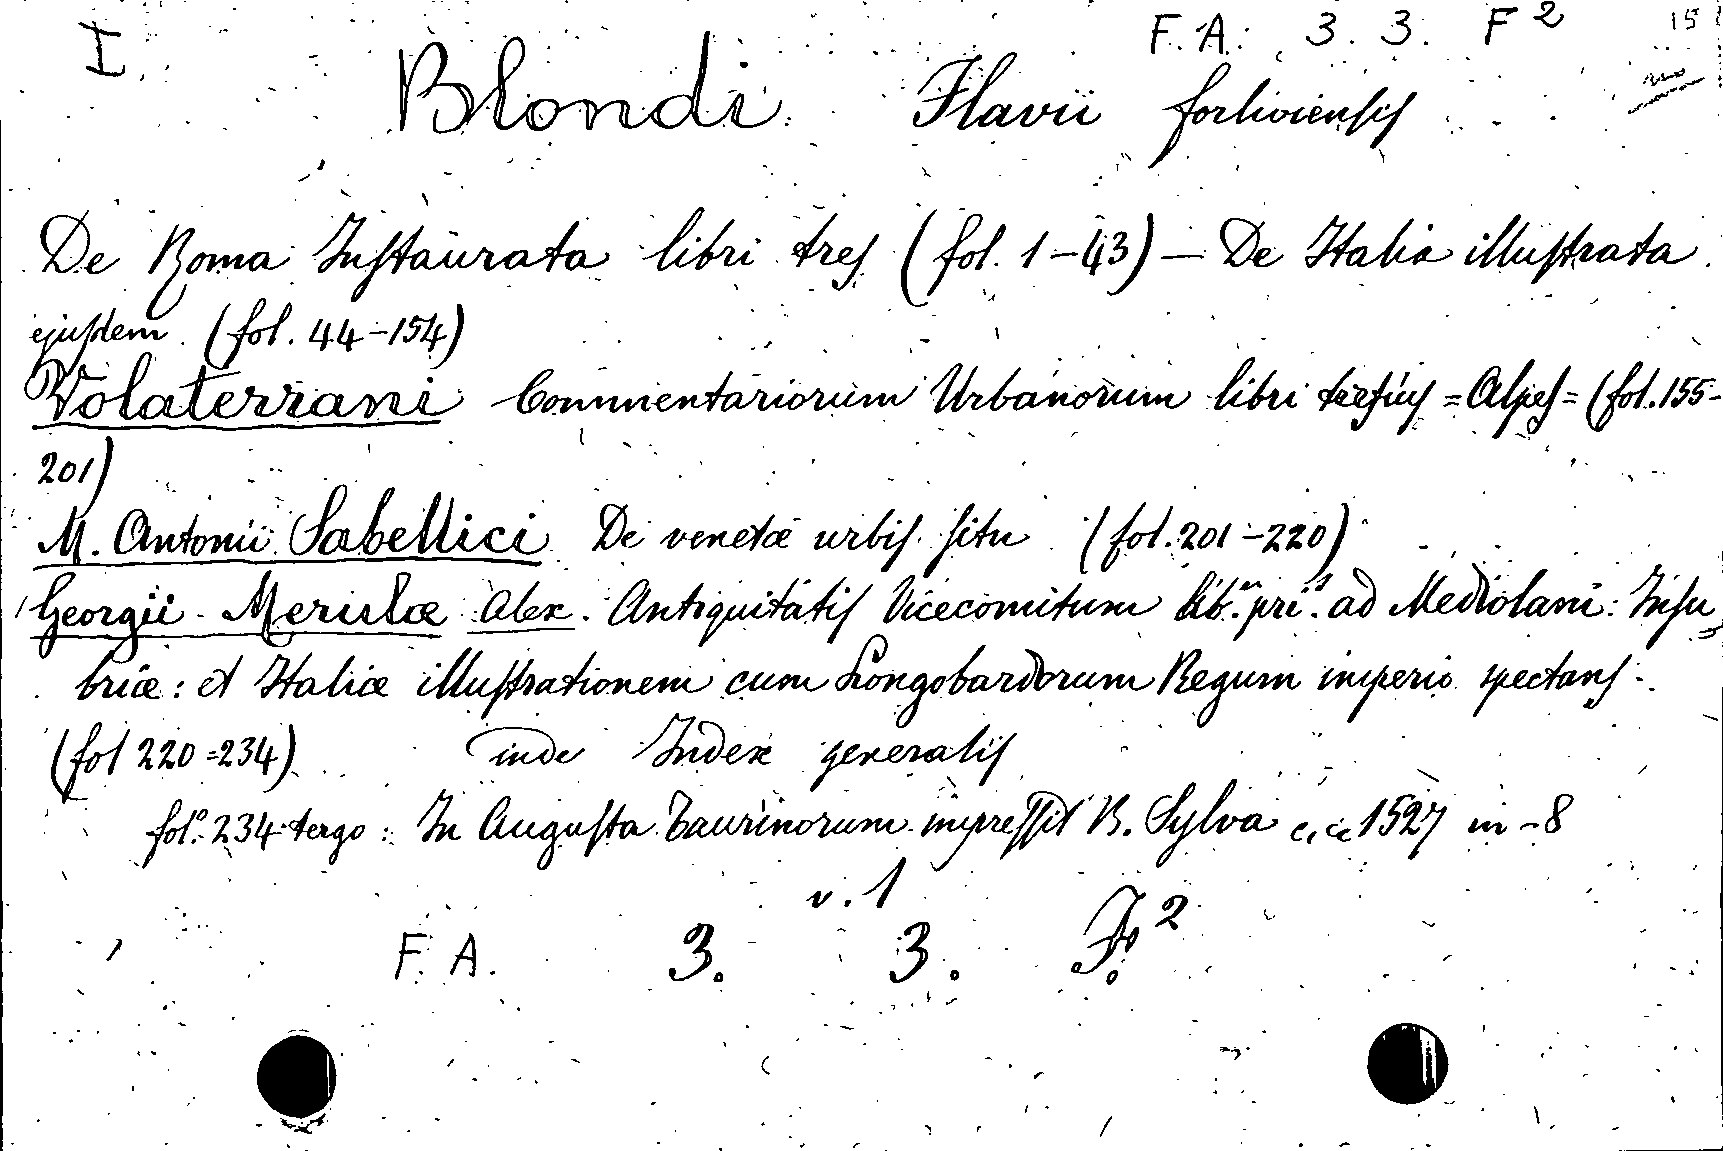 I F. A. 3. 3. F² 15
Blondi Flavii forliviensis
De Roma Instaurata libri tres (fol. 1-43) — De Italia illustrata
ejusdem (fol. 44-154)
Volaterrani Commentariorum Urbanorum libri tertius = Alpes = (fol. 155-
201)
M. Antonii Sabellici De venetæ urbis situ (fol. 201-220)
Georgii Merulæ Alex. Antiquitatis Vicecomitum lib. pri. ad Mediolani: Insu=
briæ: et Italiæ illustrationem cum Longobardorum Regum imperio spectans.
(fol 220=234) inde Index generalis
fol.° 234 tergo: In Augusta Taurinorum impressit B. Sylva 1527 in-8
v. 1
F. A. 3. 3. F.²